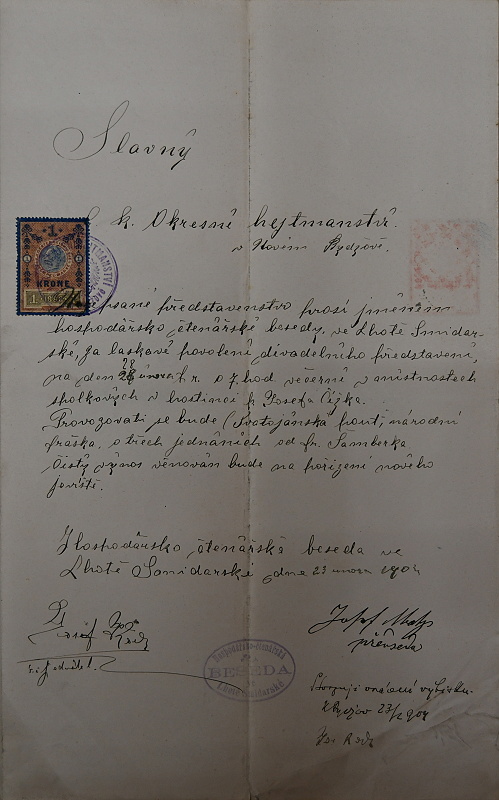 Slavný
k. k. Okresní hejtmanství.
v Novém Bydžově.
1
KRONE
1 1898
psané představenstvo prosí jménem
hospodářsko čtenářské besedy, ve Lhotě Smidar-
ské, za laskavé povolení divadelního představení,
na den 28 února t. r. o 7 hod večerní v místnostech
spolkových v hostinci p. Josefa Čížka.
Provozovati se bude (Svatojánská pouť, národní
fraška, o třech jednáních od fr. Šamberka
Čistý výnos věnován bude na pořízení nového
jeviště.
Hospodářsko čtenářská beseda ve
Lhotě Smidarské dne 23 února 1904
Josef
Josef
předseda
Hospodářsko-čtenářská
BESEDA
Lhotě Smidarské
23/2 904